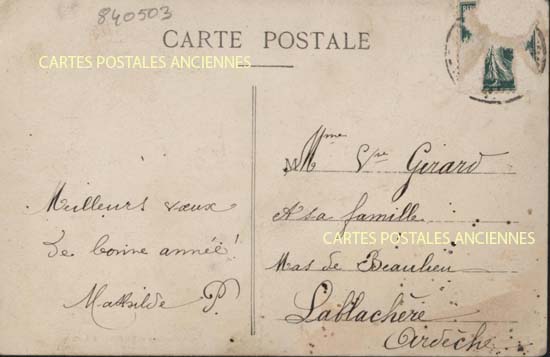 840503
CARTE POSTALE
CARTES POSTALES ANCIENNES
Meilleurs vœux
de bonne année!
Mathilde P.
Mme Vve Girard
& sa famille
CARTES POSTALES ANCIENNES
Mas de Beaulieu
Lablachère
Ardèche